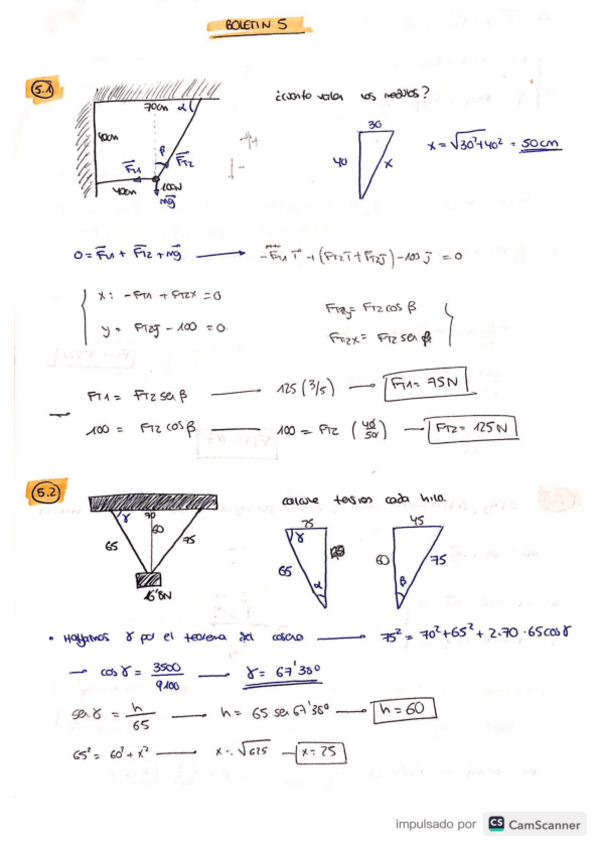 BOLETIN 5
5.1
70cm α
40cm
β
FT1
FT2
40cm
100N
mg
¿cuanto valen los modulos?
30
40
x
x = √30²+40² = 50cm
0 = FT1 + FT2 + mg → -FT1 i + (FT2 i + FT2 j) - 100 j = 0
x: -FT1 + FT2x = 0
y = FT2y - 100 = 0
FT2y = FT2 cos β
FT2x = FT2 sen β
FT1 = FT2 sen β — 125 (3/5) → FT1 = 75N
100 = FT2 cos β — 100 = FT2 (40/50) → FT2 = 125N
5.2
γ
70
60
65
75
16'8N
calcular tension cada hilo.
25
γ
65
α
45
60
75
β
• Hallamos γ por el teorema del coseno → 75² = 70² + 65² + 2·70·65 cos γ
→ cos γ = 3500/9100 → γ = 67'38º
sen γ = h/65 → h = 65 sen 67'38º → h = 60
65² = 60² + x² → x = √625 — x = 25
impulsado por CS CamScanner